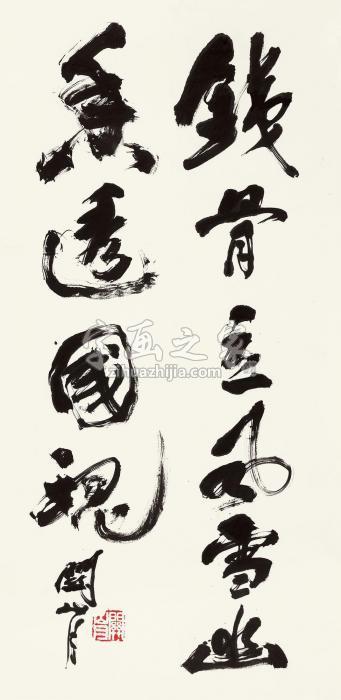 鐵骨立風雪幽
香透國魂
關山月
字画之家
zihuazhijia.com